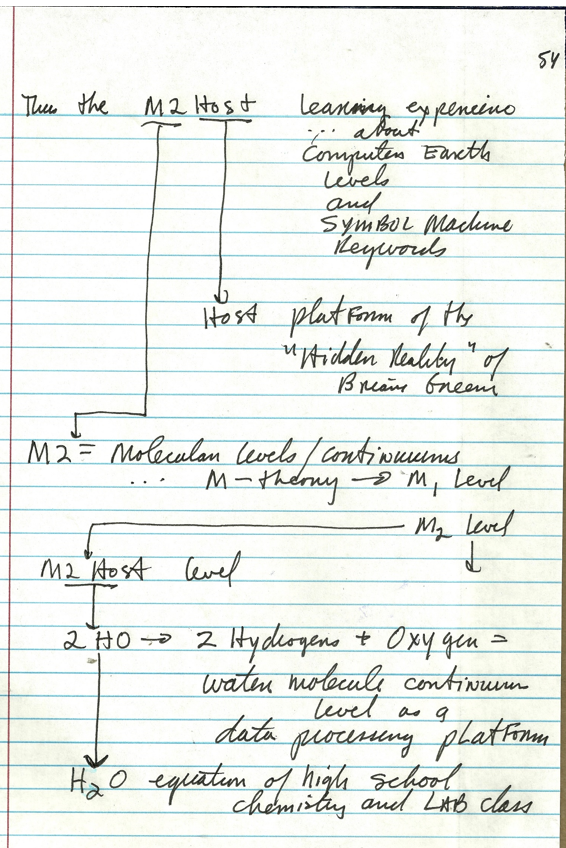 54
Thus the M2 Host Learning experience
... about
Computer Earth
Levels
and
SYMBOL Machine
Keywords
Host platform of the
"Hidden Reality" of
Brian Greene
M2 = Molecular levels/continuums
... M-theory → M1 Level
M2 Level
M2 Host level
2 HO → 2 Hydrogens + Oxygen =
water molecule continuum
level as a
data processing platform
H2O equation of high school
chemistry and LAB class